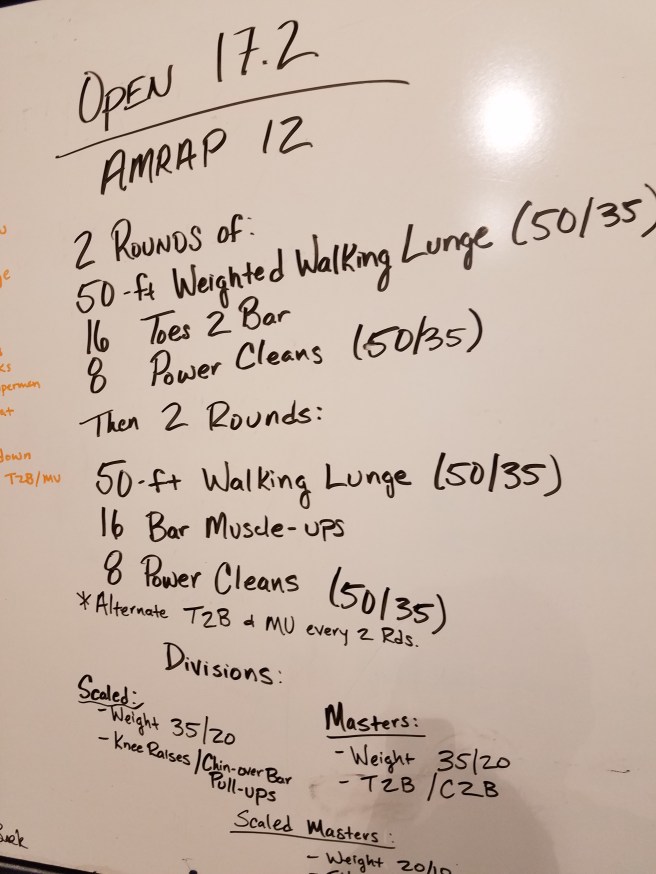 OPEN 17.2
AMRAP 12
2 ROUNDS OF:
50-ft Weighted Walking Lunge (50/35)
16 Toes 2 Bar
8 Power Cleans (50/35)
Then 2 Rounds:
50-ft Walking Lunge (50/35)
16 Bar Muscle-ups
8 Power Cleans (50/35)
*Alternate T2B & MU every 2 Rds.
Divisions:
Scaled:
- Weight 35/20
- Knee Raises / Chin-over Bar
Pull-ups
Masters:
- Weight 35/20
- T2B / C2B
Scaled Masters:
- Weight 20/10
down
T2B/MU